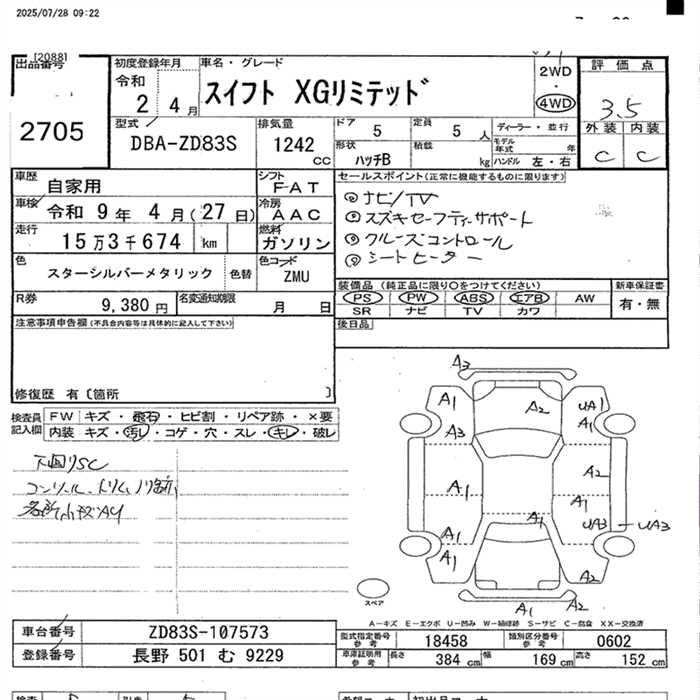 2025/07/28 09:22
[2088]
出品番号
2705
初度登録年月
令和
2 4月
車名・グレード
スイフト XGリミテッド
2WD
・
4WD
評価点
3.5
外装 内装
C C
型式
DBA-ZD83S
排気量
1242
cc
ドア
5
定員
5 人
ディーラー・並行
モデル年式 年
形状
ハッチB
積載
kg
ハンドル 左・右
車歴
自家用
シフト
F-AT
車検
令和 9年 4月(27日)
冷房
AAC
走行
15万3千674 km
燃料
ガソリン
色
スターシルバーメタリック
色替
色コード
ZMU
R券
9,380 円
名変通知期限
月 日
セールスポイント(正常に機能するものに限ります)
◎ナビ/TV
◎スズキセーフティサポート
◎クルーズコントロール
◎シートヒーター
装備品 (純正品に限り○をつけてください)
新車保証書
PS PW ABS エアB AW
有・無
SR ナビ TV カワ
後日品
注意事項申告欄(不具合内容等は具体的に記入して下さい)
修復歴 有〔箇所 〕
検査員
記入欄
FW キズ・飛石・ヒビ割・リペア跡・×要
内装 キズ・汚レ・コゲ・穴・スレ・キレ・破レ
下回りSC
各所小キズAY
A3
A1
A2
UA1
A1
A3
A2
A1
A1
A1
A1
UA3
UA3
A1
A2
A1
A2
スペア
A-キズ E-エクボ U-凹み W-補修跡 S-サビ C-腐食 XX-交換済
車台番号
ZD83S-107573
登録番号
長野 501 む 9229
型式指定番号
参考
18458
類別区分番号
参考
0602
車庫証明用
参考
長さ
384 cm
幅
169 cm
高さ
152 cm